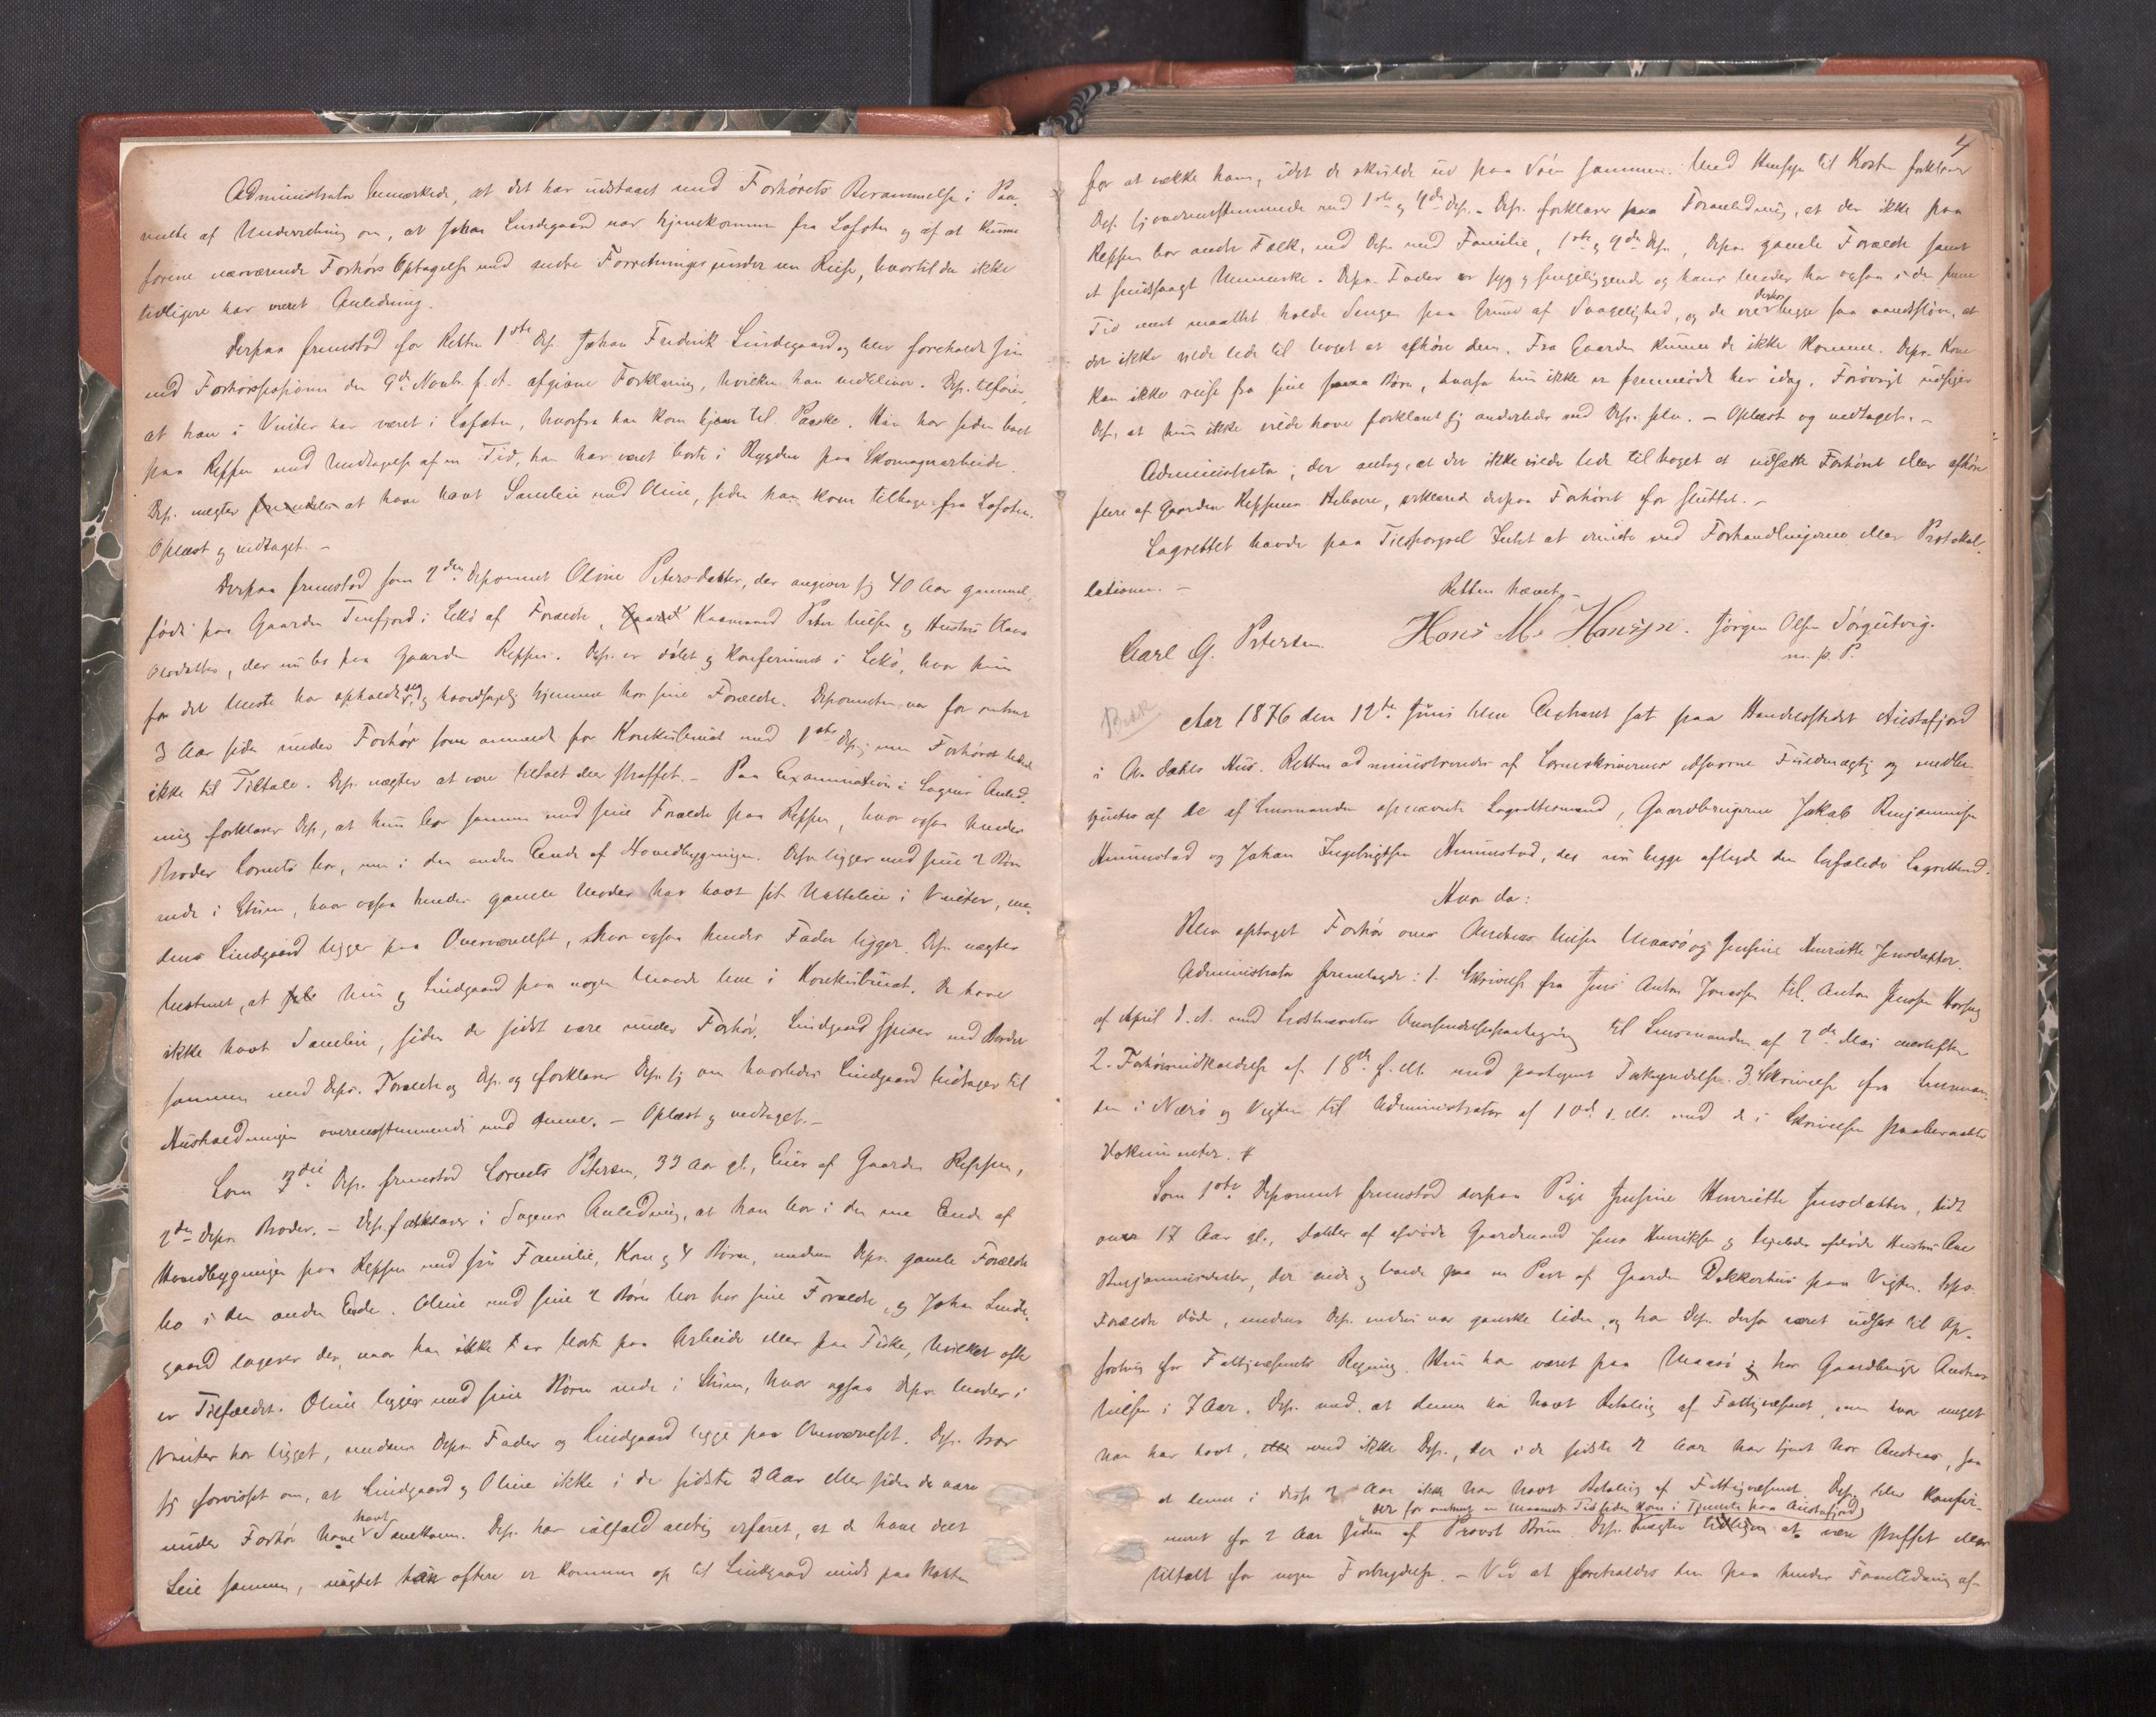 Administrator bemærkede, at det har udstaaet med Forhørets Berammelse i Paa-
vente af Underretning om, at Johan Lindegaard var hjemkommen fra Lofoten og af at kunne
forene nærværende Forhørs Optagelse med andre Forretninger under en Reise, hvortil der ikke
tidligere har været Anledning.
Derpaa fremstod for Retten 1ste Dep. Johan Fredrik Lindegaard og blev foreholdt sin
ved Forhørssessionen den 9de Novbr. f. A. afgivne Forklaring, hvilken han vedbliver. Dep. tilføier,
at han i Vinter har været i Lofoten, hvorfra han kom hjem til Paaske. Han har siden boet
paa Reppen med Undtagelse af en Tid, han har været borte i Bygden paa Skomagerarbeide.
Dep. nægter at have havt Samleie med Oline, siden han kom tilbage fra Lofoten.
Oplæst og vedtaget. –
Derpaa fremstod som 2den Deponent Oline Petersdatter, der angiver sig 40 Aar gammel,
født paa Gaarden Tenfjord i Lekø af Forældre, Gaard Kaarmand Peter Nielsen og Hustru Maren
Olsdatter, der nu bo paa Gaarden Reppen. Dep. er døbt og konfirmeret i Lekø, hvor hun
for det Meste har opholdt sig og hovedsagelig hjemme hos sine Forældre. Deponenten var for omtrent
3 Aar siden under Forhør som anmeldt for Konkubinat med 1ste Dep., men Forhøret ledede
ikke til Tiltale. Dep. nægter at være tiltalt eller straffet. – Paa Examination i Sagens Anled-
ning forklarer Dep., at hun bor sammen med sine Forældre paa Reppen, hvor ogsaa hendes
Broder Cornelis bor, men i den anden Ende af Hovedbygningen. Dep. ligger med sine 2 Børn
nede i Stuen, hvor ogsaa hendes gamle Moder har havt sit Natteleie i Vinter, me-
dens Lindgaard ligger paa Overværelset, hvor ogsaa hendes Fader ligger. Dep. nægter
bestemt, at hun og Lindgaard paa nogen Maade leve i Konkubinat. De have
ikke havt Samleie, siden de sidst vare under Forhør. Lindgaard spiser ved Bordet
sammen med Deps. Forældre og Dep. og forklarer Dep. sig om hvorledes Lindgaard bidrager til
Husholdningen overensstemmende med denne. – Oplæst og vedtaget. –
Som 3die Dep. fremstod Cornelis Petersen, 33 Aar gl., Eier af Gaarden Reppen,
2den Deps. Broder. – Dep. forklarer i Sagens Anledning, at han bor i den ene Ende af
Hovedbygningen paa Reppen med sin Familie, Kone og 4 Børn, medens Deps. gamle Forældre
bo i den anden Ende. Oline med sine 2 Børn bor hos sine Forældre, og Johan Linde-
gaard logerer der, naar han ikke er borte paa Arbeide eller paa Fiske, hvilket ofte
er Tilfældet. Oline ligger med sine Børn nede i Stuen, hvor ogsaa Deps. Moder i
Vinter har ligget, medens Deps. Fader og Lindgaard ligge paa Overværelset. Dep. tror
sig forvisset om, at Lindgaard og Oline ikke i de sidste 3 Aar eller siden de vare
under Forhør have havt Samkvem. Dep. har ialfald aldrig erfaret, at de have delt
Leie sammen, uagtet han oftere er kommen op til Lindgaard midt paa Natten
4
for at vække ham, idet de skulde ud paa Søen sammen. Med Hensyn til Kosten forklarer
Dep. sig overensstemmende med 1ste og 2den Dep. – Dep. forklarer paa Foranledning, at der ikke paa
Reppen bor andre Folk, end Dep. med Familie, 1ste og 2den Dep., Deps. gamle Forældre samt
et sindssvagt Menneske. Deps. Fader er syg og sengeliggende og hans Moder har ogsaa i den senere
Tid mest maattet holde Sengen paa Grund af Svagelighed, og de ere derhos begge saa aandssløve, at
det ikke vilde lede til Noget at afhøre dem. Fra Gaarden kunne de ikke komme. Deps. Kone
kan ikke reise fra sine smaa Børn, hvorfor hun ikke er fremmødt her idag. Forøvrigt udsiger
Dep., at hun ikke vilde have forklaret sig anderledes end Dep. selv. – Oplæst og vedtaget. –
Administrator, der antog, at det ikke vilde lede til Noget at udsætte Forhøret eller afhøre
flere af Gaarden Reppens Beboere, erklærede derpaa Forhøret for sluttet. –
Lagrettet havde paa Tilspørgsel Intet at erindre ved Forhandlingerne eller Protokol-
lationen. –
Retten hævet. –
Carl G. Petersen. Hans M. Hansen. Jørgen Olsen Sørgutvig.
m. p. P.
Aar 1876 den 12te Juni blev Extraret sat paa Handelsstedet Austafjord
i A. Dahls Hus. Retten administreredes af Sorenskriverens edsvorne Fuldmægtig og medbe-
tjentes af de af Lensmanden opnævnte Lagrettesmænd, Gaardbrugerne Jakob Benjaminsen
Hunnestad og Johan Ingebrigtsen Hunnestad, der nu begge aflagde den befalede Lagretteed.
Hvor da:
Blev optaget Forhør over Andreas Nilsen Maasø og Jensine Henriette Jensdatter.
Administrator fremlagde: 1. Skrivelse fra Jens Anton Jonassen til Anton Jensen Horseng
af April d. A. med Lensmandens Anmeldelsespaategning til Lensmanden af 2den Mai næstefter
2. Forhørsindkaldelse af 18de f. M. med paategnet Forkyndelse. 3. Skrivelse fra Lensman-
den i Nærø og Vigten til Administrator af 10de d. M. med de i Skrivelsen paaberaabte
Dokumenter.
Som 1ste Deponent fremstod derpaa Pige Jensine Henriette Jensdatter, lidt
over 17 Aar gl., Datter af afdøde Gaardmand Jens Henriksen og ligeledes afdøde Hustru Ane
Benjaminsdatter, der eiede og boede paa en Part af Gaarden Dekkerhus paa Vigten. Deps.
Forældre døde, medens Dep. endnu var ganske liden, og har Dep. derfor været udsat til Op-
fostring for Fattigvæsenets Regning. Hun har været paa Maasø hos Gaardbruger Andreas
Nilsen i 7 Aar. Dep. ved, at denne har havt Betaling af Fattigvæsenet, men hvor meget
han har havt, ved ikke Dep., der i de sidste 2 Aar har tjent hos Andreas, saa
at denne i disse 2 Aar ikke har havt Betaling af Fattigvæsenet. Dep. blev konfir-
der for omtrent en Maaneds Tid siden kom i Tjeneste paa Austafjord)
meret for 2 Aar siden af Provst Brun. Dep. nægter tidligere at være straffet eller
tiltalt for nogen Forbrydelse. – Ved at foreholdes den paa hendes Foranledning af-